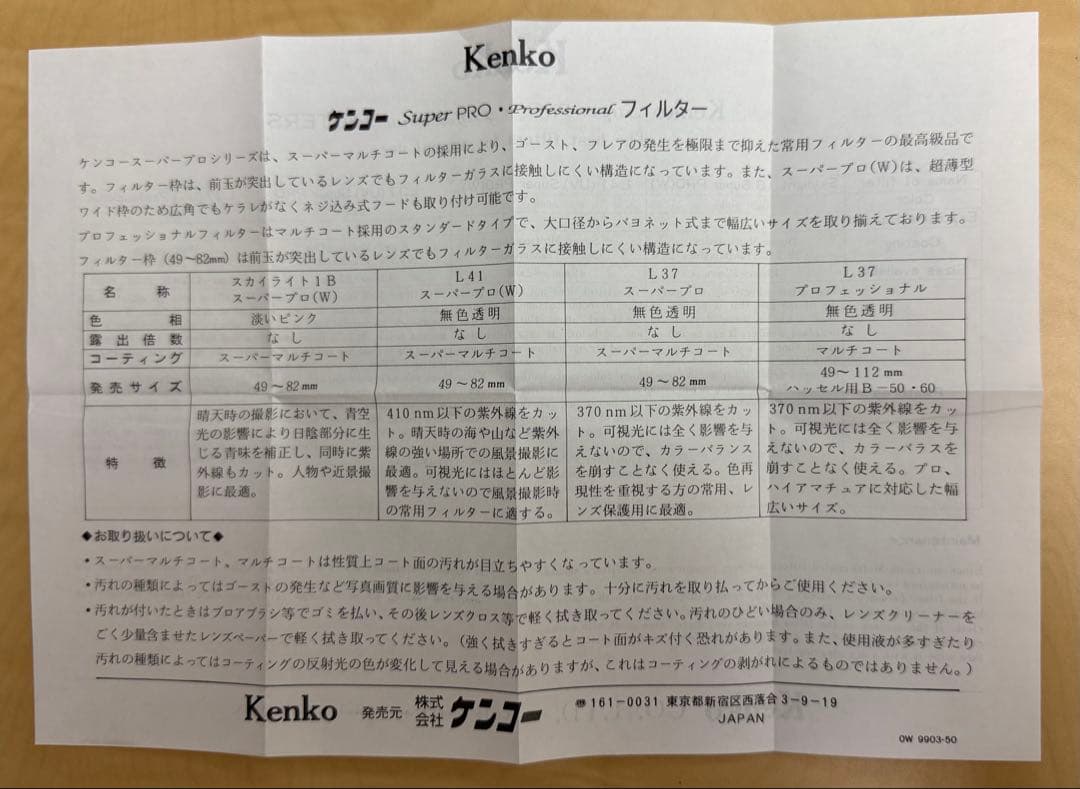 Kenko
ケンコー Super PRO・Professional フィルター
ケンコースーパープロシリーズは、スーパーマルチコートの採用により、ゴースト、フレアの発生を極限まで抑えた常用フィルターの最高級品で
す。フィルター枠は、前玉が突出しているレンズでもフィルターガラスに接触しにくい構造になっています。また、スーパープロ(W)は、超薄型
ワイド枠のため広角でもケラレがなくネジ込み式フードも取り付け可能です。
プロフェッショナルフィルターはマルチコート採用のスタンダードタイプで、大口径からバヨネット式まで幅広いサイズを取り揃えております。
フィルター枠(49〜82mm)は前玉が突出しているレンズでもフィルターガラスに接触しにくい構造になっています。
名称
スカイライト1B
スーパープロ(W)
L41
スーパープロ(W)
L37
スーパープロ
L37
プロフェッショナル
色相
淡いピンク
無色透明
無色透明
無色透明
露出倍数
なし
なし
なし
なし
コーティング
スーパーマルチコート
スーパーマルチコート
スーパーマルチコート
マルチコート
発売サイズ
49〜82mm
49〜82mm
49〜82mm
49〜112mm
ハッセル用B−50・60
特徴
晴天時の撮影において、青空
光の影響により日陰部分に生
じる青味を補正し、同時に紫
外線もカット。人物や近景撮
影に最適。
410nm以下の紫外線をカッ
ト。晴天時の海や山など紫外
線の強い場所での風景撮影に
最適。可視光にはほとんど影
響を与えないので風景撮影時
の常用フィルターに適する。
370nm以下の紫外線をカッ
ト。可視光には全く影響を与
えないので、カラーバランス
を崩すことなく使える。色再
現性を重視する方の常用、レ
ンズ保護用に最適。
370nm以下の紫外線をカッ
ト。可視光には全く影響を与
えないので、カラーバラスを
崩すことなく使える。プロ、
ハイアマチュアに対応した幅
広いサイズ。
◆お取り扱いについて◆
・スーパーマルチコート、マルチコートは性質上コート面の汚れが目立ちやすくなっています。
・汚れの種類によってはゴーストの発生など写真画質に影響を与える場合があります。十分に汚れを取り払ってからご使用ください。
・汚れが付いたときはブロアブラシ等でゴミを払い、その後レンズクロス等で軽く拭き取ってください。汚れのひどい場合のみ、レンズクリーナーを
ごく少量含ませたレンズペーパーで軽く拭き取ってください。(強く拭きすぎるとコート面がキズ付く恐れがあります。また、使用液が多すぎたり
汚れの種類によってはコーティングの反射光の色が変化して見える場合がありますが、これはコーティングの剥がれによるものではありません。)
Kenko 発売元 株式会社ケンコー
〠161-0031 東京都新宿区西落合3-9-19
JAPAN
OW 9903-50